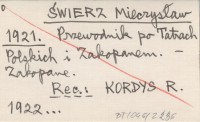 ŚWIERZ Mieczysław
1921. Przewodnik po Tatrach
Polskich i Zakopanem. –
Zakopane.
Rec.: KORDYS R.
1922...